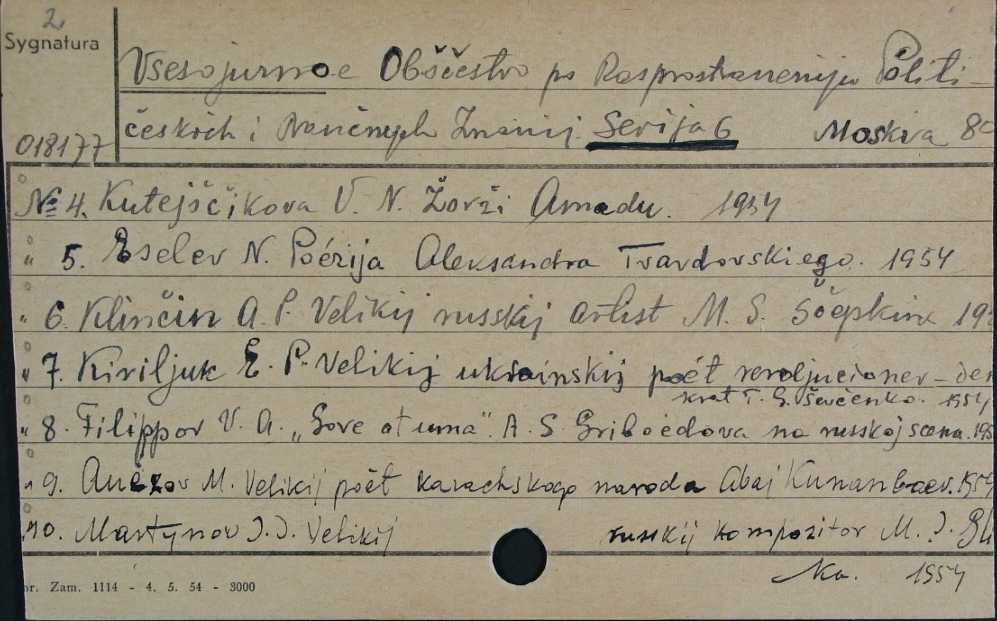 2.
Sygnatura
Vsesojuznoe Obščestvo po Rasprostraneniju Politi-
českich i Naučnych Znanij. Serija 6 Moskva 8°
018177
№ 4. Kutejščikova V. N. Žorži Amadu. 1954
" 5. Eselev N. Poézija Aleksandra Tvardovskiego. 1954
" 6. Klinčin A. P. Velikij russkij artist M. S. Ščepkin 195
" 7. Kiriljuk E. P. Velikij ukrainskij poét revoljucioner-dem
krat T. G. Ševčenko. 1954
" 8. Filippov V. A. „Gore ot uma". A. S. Griboedova na russkoj scene. 195
" 9. Auézov M. Velikij poét kazachskogo naroda Abaj Kunanbaev. 1954
" 10. Martynov I. I. Velikij russkij kompozitor M. I. Gli
nka. 1954
or. Zam. 1114 - 4. 5. 54 - 3000